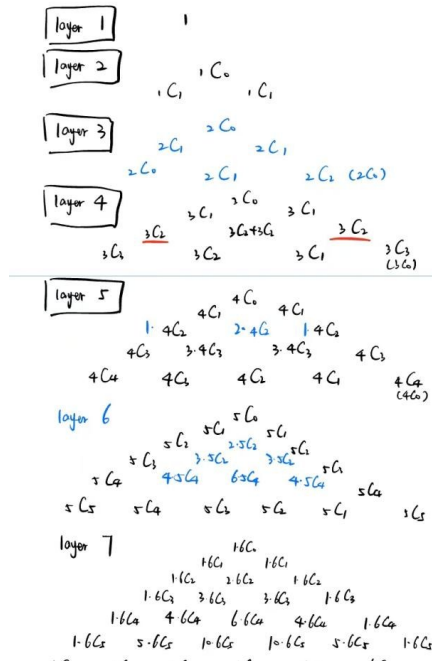 layer 1 1
layer 2 1C0
1C1 1C1
layer 3 2C0
2C1 2C1
2C0 2C1 2C2 (2C0)
layer 4 3C0
3C1 3C1
3C2 3C2+3C2 3C2
3C3 3C2 3C1 3C3
(3C0)
layer 5 4C0
4C1 4C1
1· 4C2 2·4C2 1·4C2
4C3 3·4C3 3·4C3 4C3
4C4 4C3 4C2 4C1 4C4
(4C0)
layer 6 5C0
5C1 5C1
5C2 2·5C2 5C2
5C3 3·5C2 3·5C2 5C3
5C4 4·5C4 6·5C4 4·5C4 5C4
5C5 5C4 5C3 5C2 5C1 5C5
layer 7 1·6C0
1·6C1 1·6C1
1·6C2 2·6C2 1·6C2
1·6C3 3·6C3 3·6C3 1·6C3
1·6C4 4·6C4 6·6C4 4·6C4 1·6C4
1·6C5 5·6C5 10·6C5 10·6C5 5·6C5 1·6C5